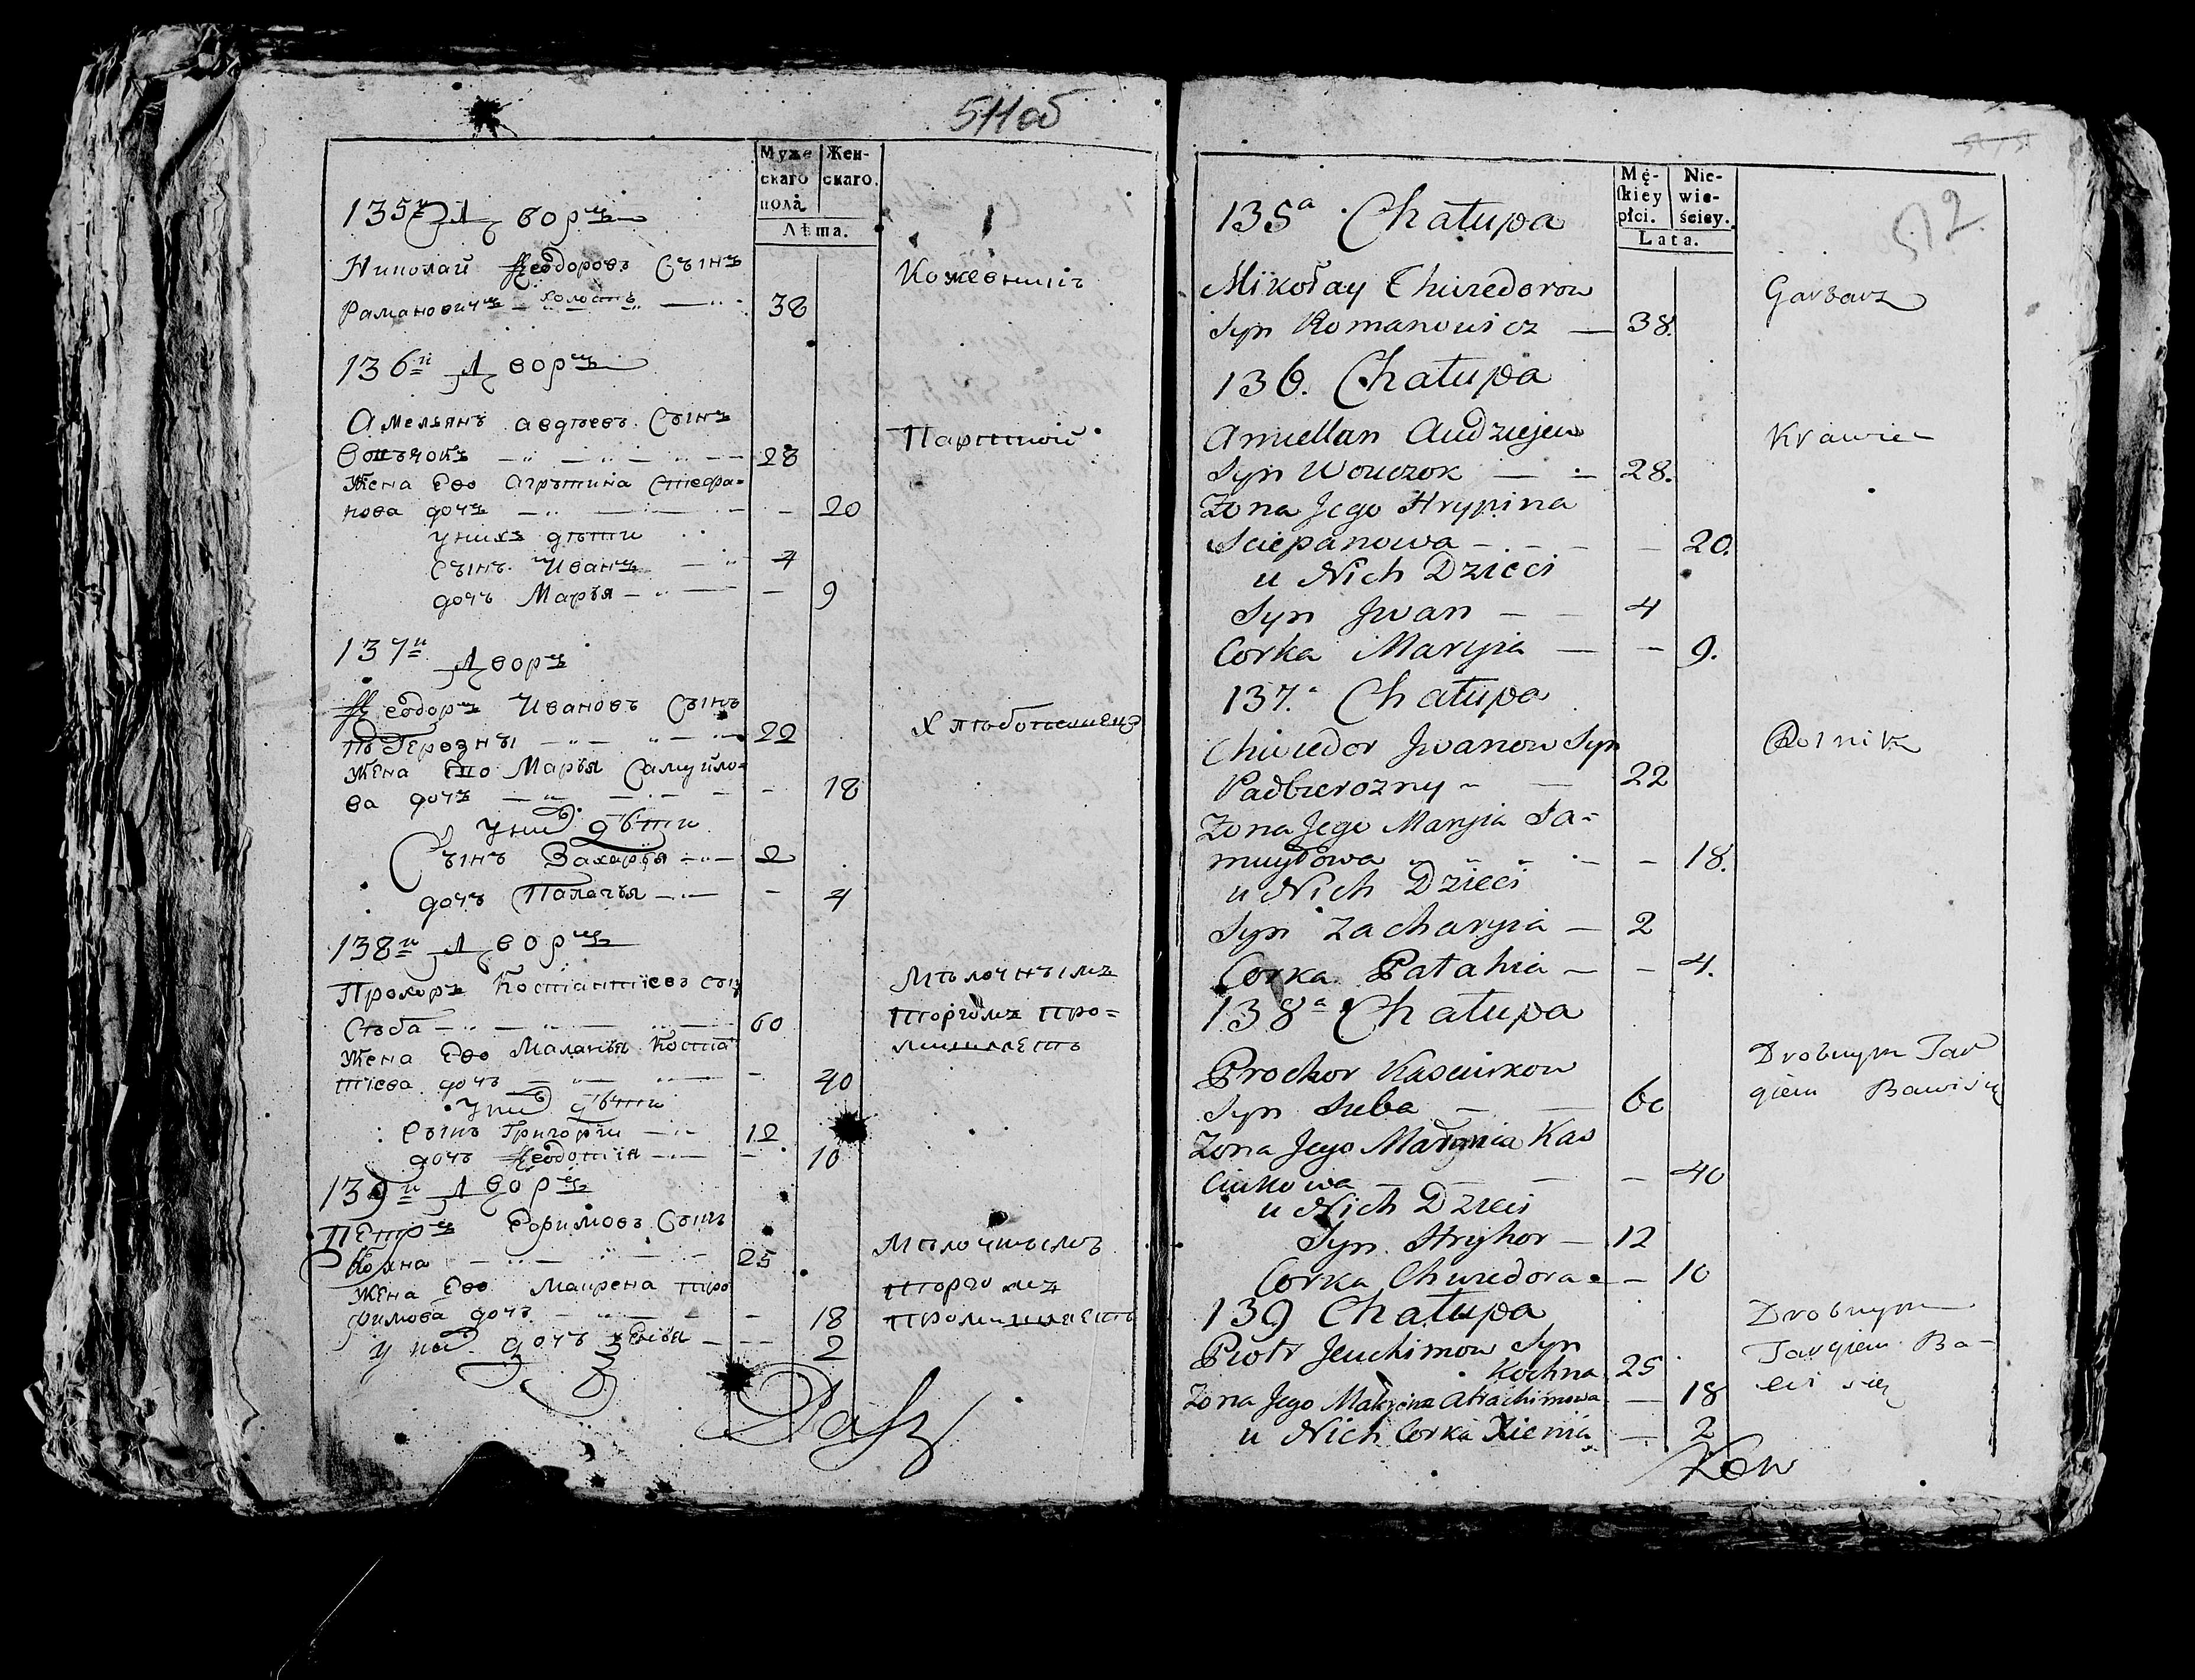 511об
Муже
скаго
пола
Жен-
скаго.
Лѣта.
135й Дворъ
Николай Ѳеодоровъ Сынъ
Рамановичъ холостъ 38
Кожевникъ
136й Дворъ
Амельянъ авдѣевъ Сынъ
28
Партной
Жена Ево Агрѣпина Стефа=
нова дочъ - 20
унихъ дѣти
Сынъ Иванъ 4
дочъ Марья - 9
137й Дворъ
Ѳеодоръ Ивановъ Сынъ
22
Хлѣбопашецъ
Жена Ево Марья Самуйло=
ва дочъ - 18
уних дѣти
Сынъ Захарья 2
дочъ Палагья - 4
138й Дворъ
Прохоръ Костантиевъ сын
Сѣба 60
Мѣлочнымъ
торгомъ про=
мишляетъ
Жена Ево Маланья Костан
тиева дочъ - 40
уних дѣти
Сынъ Григорій 12
дочъ Ѳеодотія - 10
139й Дворъ
Петръ Ефимовъ Сынъ
Кохна 25
Мѣлочнымъ
торгомъ
промишляетъ
Жена Ево Маирена тро
фимова дочъ - 18
у них дочъ - 2
512
Mę-
ſkiey
płci.
Nie-
wie-
ściey.
Lata.
135a Chałupa
Mikołay Chwiedorow
Syn Romanowicz — 38.
Garbarz
136. Chałupa
Amiellan Audziejew
Syn Wouczok — 28.
Krawiec
Zona Jego Hrypina
Sciepanowa - 20.
u Nich Dzieci
Syn Jwan — 4
Corka Maryia — 9.
137.a Chałupa
Chwiedor Jwanow Syn
Padbierozny 22
Rolnik
Zona Jego Maryia Sa=
muyłowa - 18.
u Nich Dzieci
Syn Zacharyia — 2
Corka Pałahia — 4.
138a Chałupa
Prochor Kasciukow
Syn Sieba — 60
Drobnym Tar
giem Bawi się
Zona Jego Małania Kas
ciukowa - 40
u Nich Dzieci
Syn Hryhor — 12
Corka Chwiedora - 10
139 Chałupa
Piotr Jeuchimow Syn
Kochna 25
Drobnym
Targiem Ba-
wi się
Zona Jego Atrachimowa — 18
u Nich Corka Xienia — 2